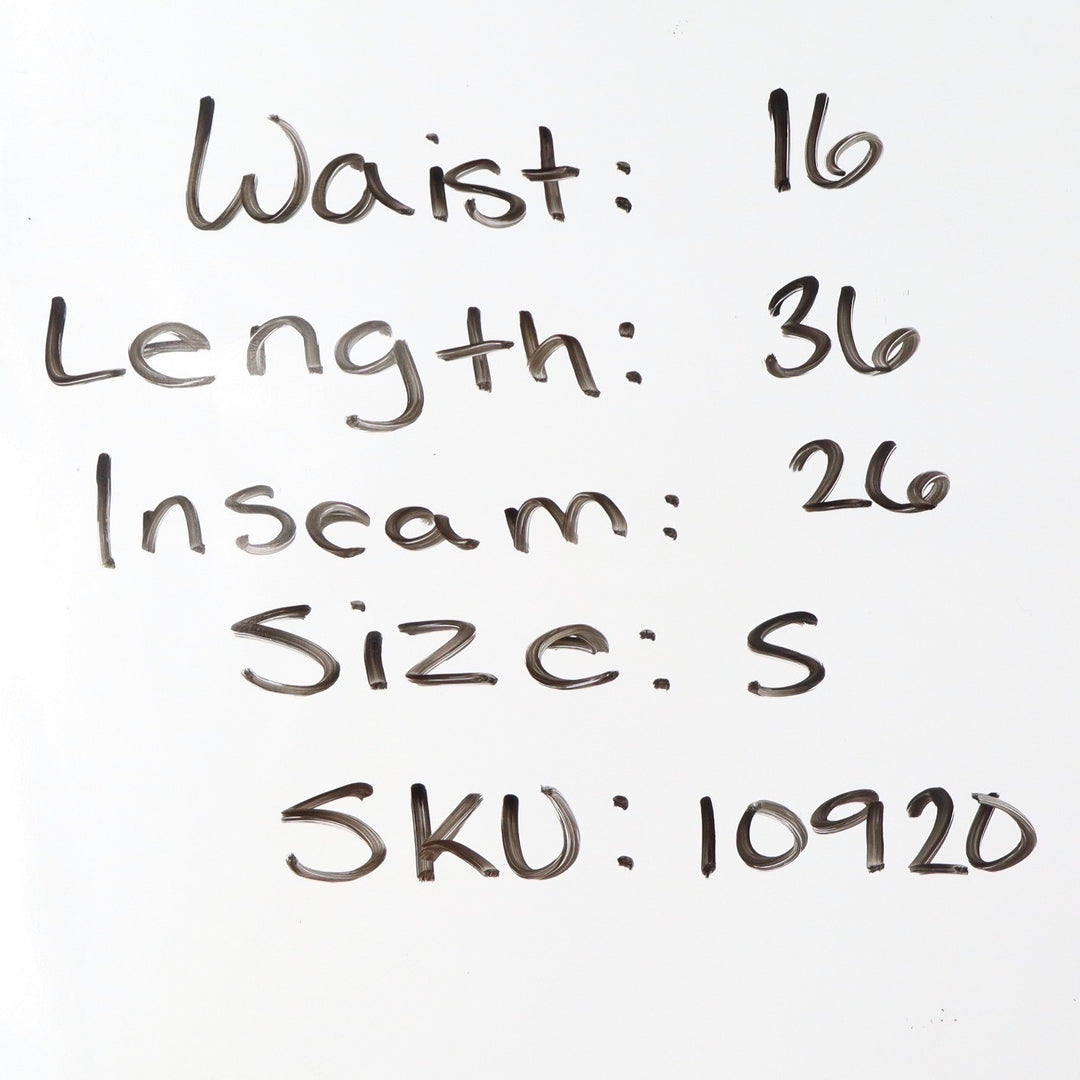 Waist: 16
Length: 36
Inseam: 26
Size: S
SKU: 10920